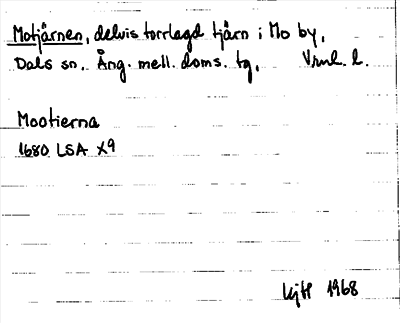 Motjärnen, delvis torrlagd tjärn i Mo by,
Dals sn. Ång. mell. doms. tg, Vrnl. l.
Mootierna
1680 LSA X9
1968